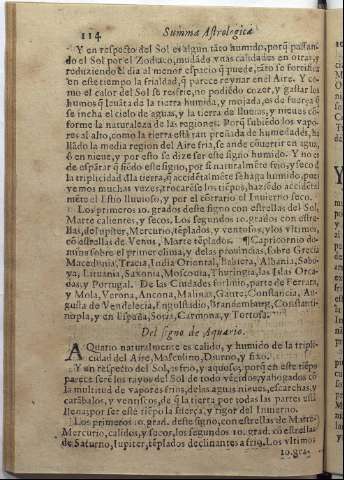 114 Summa Astrologica
Y en respecto del Sol es algun tãto humido, porq̃ passan-
do el Sol por el Zodiaco, mudãdo vnas calidades en otras, y
reduziendo el dia al menor espacio q̃ puede, tãto se fortifica
en este tiempo la frialdad, q̃ parece reynar en el Aire. Y co-
mo el calor del Sol se resfrie, no pudiẽdo cozer, y gastar los
humos q̃ leuãta de la tierra humida, y mojada, es de fuerça q̃
se incha el cielo de aguas, y la tierra de lluuias, y nieues cõ-
forme la naturaleza de las regiones. Porq̃ subiẽdo los vapo-
res al alto, como la tierra està tan preñada de humedades, ha
llãdo la media region del Aire fria, se ande cõuertir en agua,
ò en nieue, y por esto se dize ser este signo humido. Y no es
de espãtar q̃ siẽdo este signo, por si naturalmẽte frio, y seco á
la triplicidad d̃ la tierra, q̃ accidẽtalmẽte se haga humido, pues
vemos muchas vezes, trocarse los tiẽpos, haziẽdo accidẽtal
mẽte el Estio lluuioso, y por el cõtrario el Inuierno seco.
Los primeros 10. grados deste signo con estrellas del Sol,
Marte calientes, y secos. Los segundos 10. grados con estre-
llas, de Iupiter, Mercurio, tẽplados, y ventosos, y los vltimos,
cõ estrellas de Venus, Marte tẽplados. ¶ Capricornio do-
mina sobre el primer clima, y de las prouincias, sobre Grecia
Macedonia, Tracia, India Oriental, Babiera, Albania, Sabo-
ya, Lituania, Saxonia, Moscouia, Thuringia, las Islas Orca-
das, y Portugal. De las Ciudades forliuio, parte de Ferrara,
y Mola, Verona, Ancona, Malinas, Gante, Constancia, Au-
gusta de Vendelecia, Engolstadio, Brandemburg, Constanti-
nopla, y en España, Soria, Carmona, y Tortosa.
Del signo de Aquario.
AQuario naturalmente es calido, y humido de la tripli-
cidad del Aire, Masculino, Diurno, y fixo.
Y en respecto del Sol, es frio, y aquoso, porq̃ en este tiẽpo
parece serẽ los rayos del Sol de todo vẽcidos, y ahogados cõ
la multitud de vapores frios, de las aguas nieues, escarchas, y
carãbalos, y ventiscos, de q̃ la tierra por todas las partes està
llena, por ser este tiẽpo la fuerça, y rigor del Inuierno.
Los primeros 10. grad. deste signo, con estrellas de Marte
Mercurio, calidos, y secos, los segundos 10. grad. cõ estrellas
de Saturno, Iupiter, tẽplados declinantes a frio. Los vltimos
10. gra-